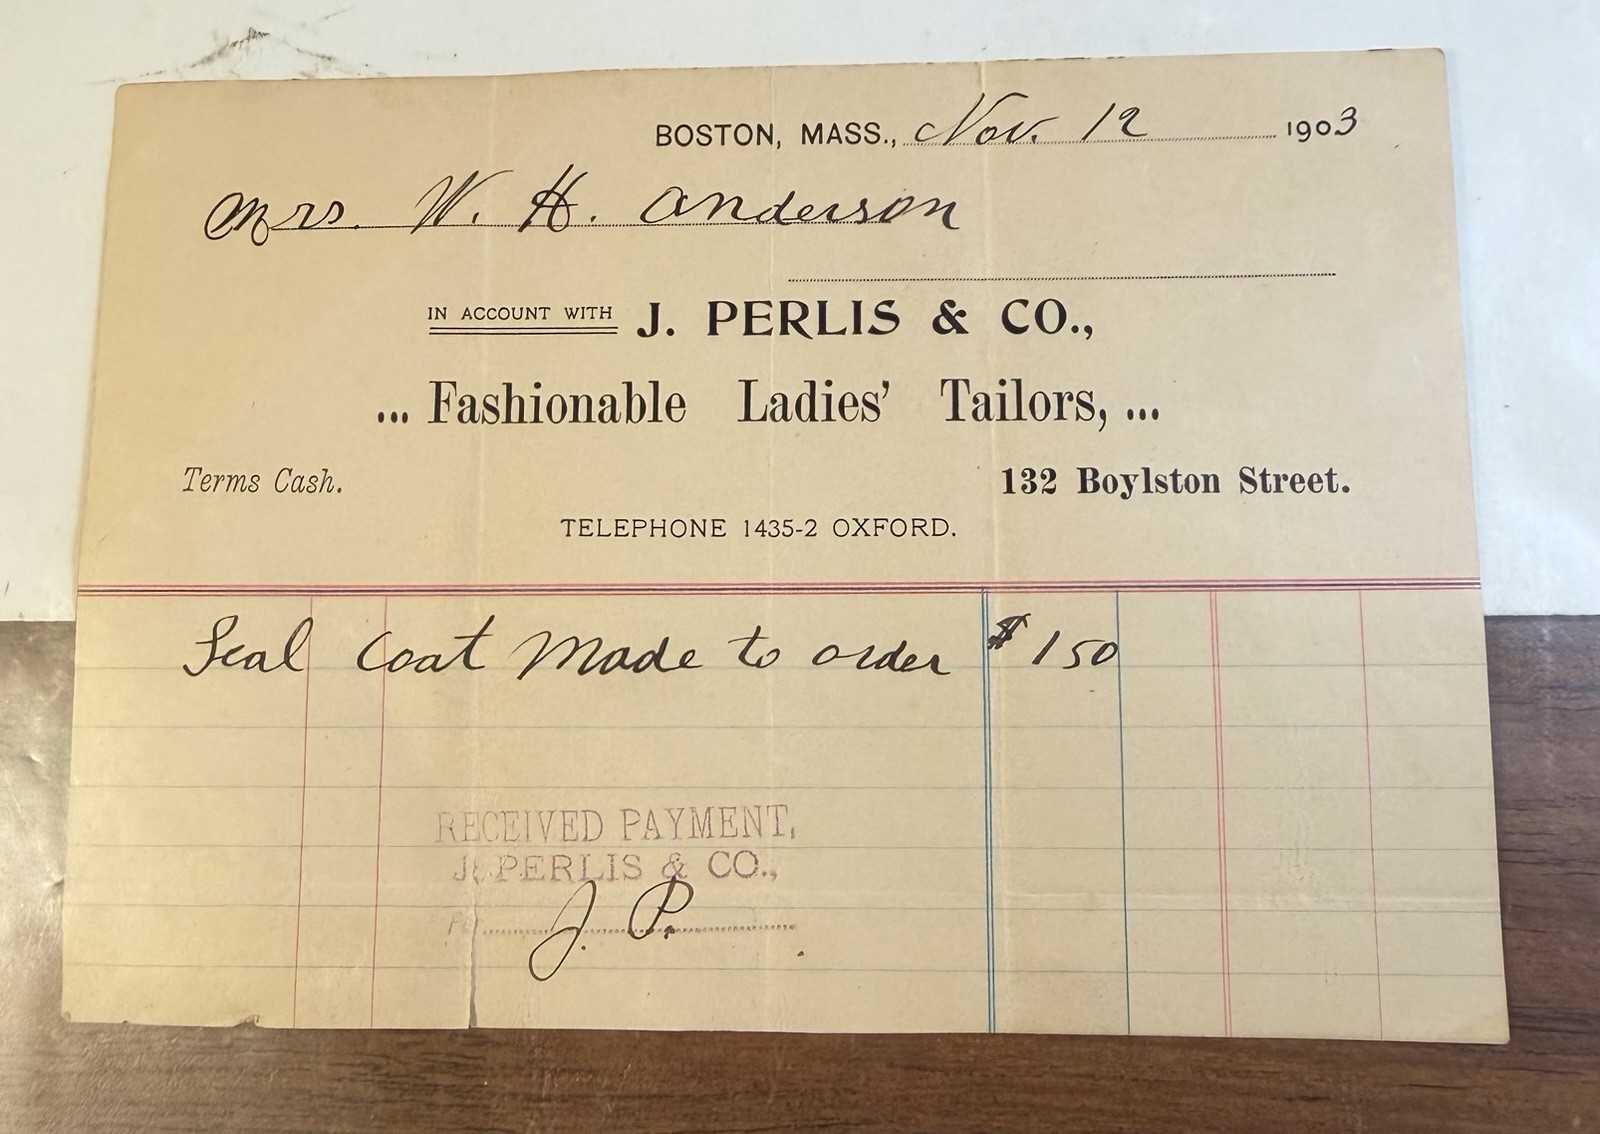 BOSTON, MASS., Nov. 12 1903
Mrs. W. H. Anderson
IN ACCOUNT WITH J. PERLIS & CO.,
... Fashionable Ladies' Tailors, ...
Terms Cash. 132 Boylston Street.
TELEPHONE 1435-2 OXFORD.
Seal Coat Made to order $150
RECEIVED PAYMENT,
J. PERLIS & CO.,
Per J. P.